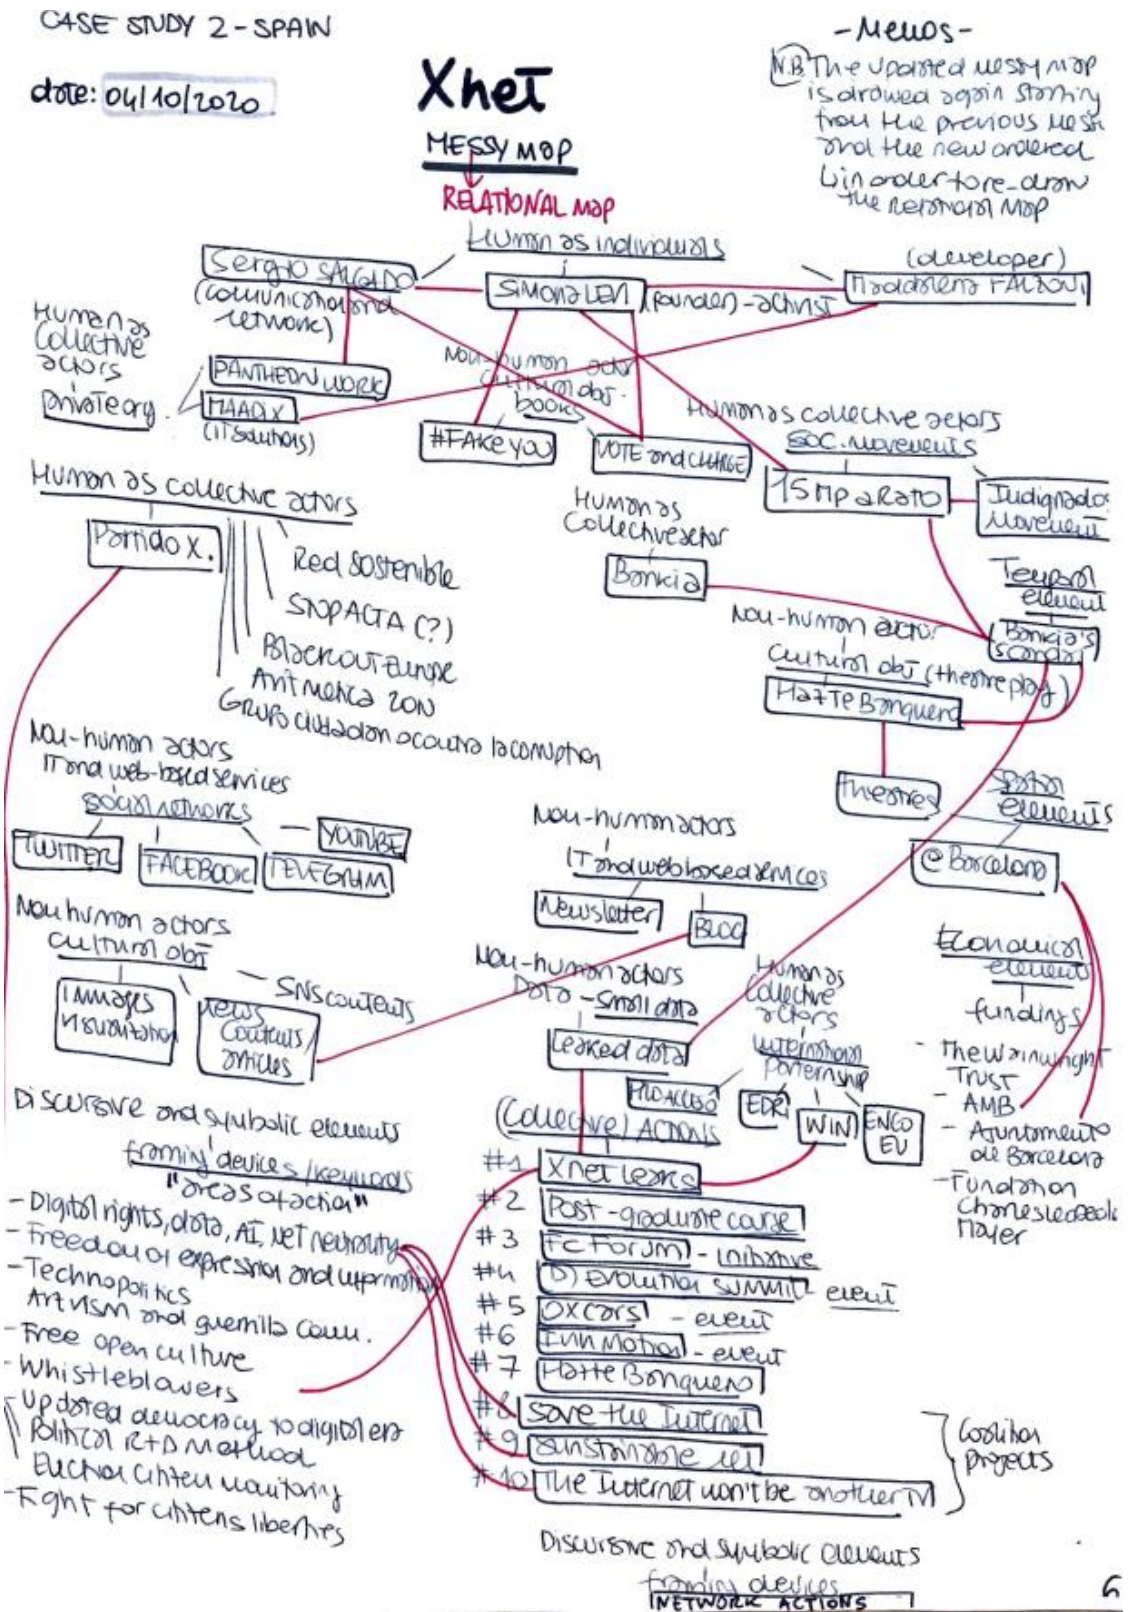 CASE STUDY 2 - SPAIN
date: 04/10/2020
Xnet
MESSY MAP
RELATIONAL MAP
- Memos -
N.B. The updated messy map
is drowed again starting
from the previous messy
and the new ordered
in order to re-draw
the relational map
Human as individuals
Sergio SALGADO
(comunication and
network)
SIMONA LEVI (founder) - activist
(developer)
Maddalena FALZONI
Human as
Collective
actors
private org.
PANTHEON WORK
MAADIX
(IT solutions)
Non-human actor
cultural obj.
books
#FAKEYOU
VOTE and CHARGE
Human as collective actors
SOC. Movements
15MpaRato
Indignados
Movement
Human as collective actors
Partido X.
Red SOSTENIBLE
STOP ACTA (?)
Blackout Europe
Aritmetica 20N
Grupo ciudadano contra la corruption
Human as
Collective actor
Bankia
Temporal
element
Bankia's
scandal
Non-human actor
Cultural obj (theatre play)
Hazte Banquero
theatres
Spatial
elements
@ Barcelona
Non-human actors
IT and web-based services
social networks
TWITTER
FACEBOOK
TELEGRAM
YOUTUBE
Non-human actors
IT and web based services
Newsletter
BLOG
Non human actors
cultural obj
IMMAGES
visualization
news
contents/
articles
SNS contents
Non-human actors
Data - Small data
Leaked data
Human as
Collective
actors
international
parternship
PROACCESO
EDRi
WIN
ENCO
EU
Economical
element
fundings
- The Wainwright
Trust
- AMB
- Ajuntamento
de Barcelona
- Fundation
Charles Leopold
Mayer
Discursive and symbolic elements
framing devices/keywords
"areas of action"
- Digital rights, data, AI, NET neutrality
- Freedom of expression and information
- Technopolitics
Artivism and guerrilla comm.
- Free open culture
- Whistleblowers
- Updated democracy to digital era
Political R+D Method
Election citizen monitoring
- Fight for citizens liberties
(Collective) ACTIONS
#1 Xnet Leaks
#2 Post-graduate course
#3 FC Forum - initiative
#4 (D)Evolution SUMMIT - event
#5 OXcars - event
#6 Inn Motion - event
#7 Hazte Banquero
#8 Save the Internet
#9 sustainable net
#10 The Internet won't be another TV
Coalition
projects
Discursive and symbolic elements
framing devices
NETWORK ACTIONS